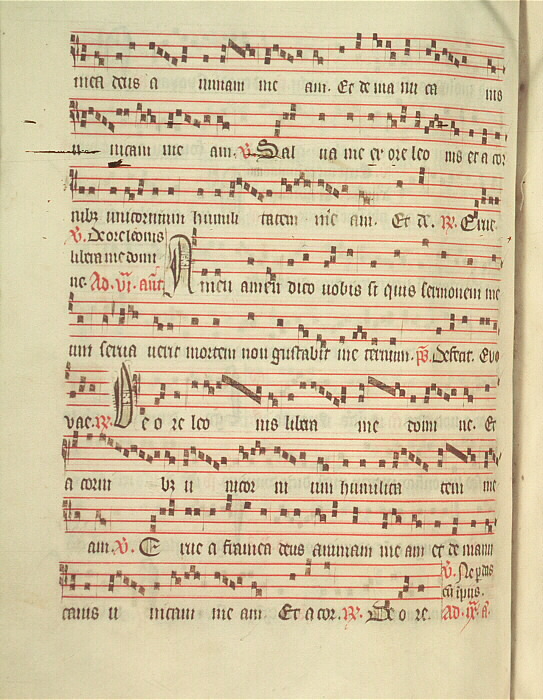 mea deus a nimam me am. Et de ma nu ca nis
u nicam me am. V. Sal ua me ex ore leo nis et a cor
nibꝫ unicornium humili tatem me am. Et de. R. Erue
V. De ore leonis
libera me domi
ne. Ad. vi. añt.
Amen amen dico uobis si quis sermonem me
um serua uerit mortem non gustabit in e ternum. p̄s. Defecit. Euo
vae. R. De o re leo nis libera me domi ne. Et
a corni bꝫ u nicor ni um humilita tem me
am. V. E rue a framea deus animam me am et de manu
canis u nicam me am. Et a cor. R. De o re.
V. Ne perdas
cū īpiis.
Ad. ix. a.